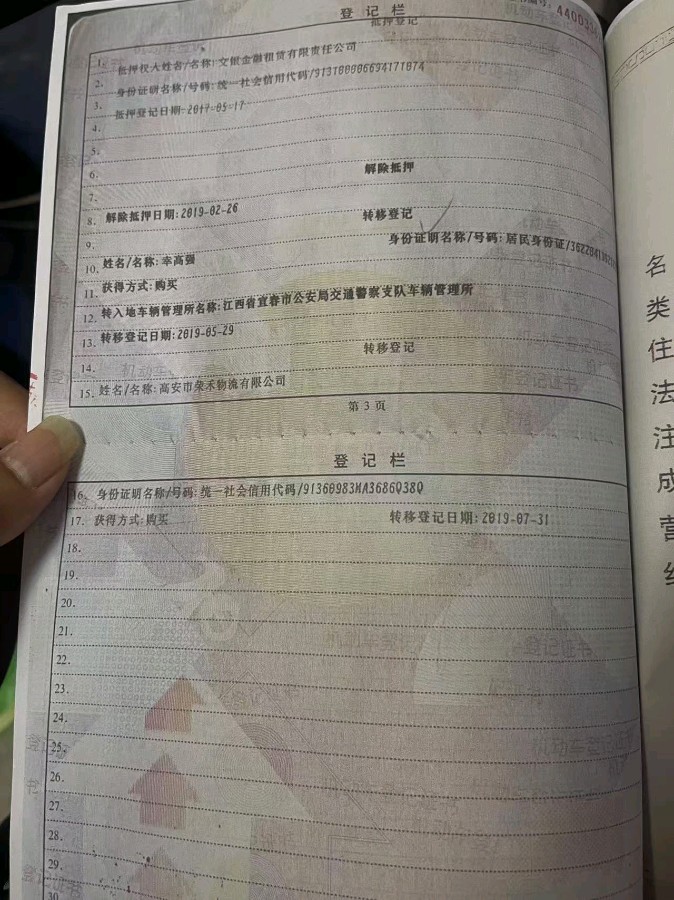 登记栏
抵押登记
1. 抵押权人姓名/名称:交银金融租赁有限责任公司
2. 身份证明名称/号码:统一社会信用代码/913100006694171074
3. 抵押登记日期:2017-05-17
4.
5.
6. 解除抵押
7.
8. 解除抵押日期:2019-02-26
9. 转移登记
10. 姓名/名称:幸高强 身份证明名称/号码:居民身份证/
11. 获得方式:购买
12. 转入地车辆管理所名称:江西省宜春市公安局交通警察支队车辆管理所
13. 转移登记日期:2019-05-29
14. 转移登记
15. 姓名/名称:高安市荣禾物流有限公司
第 3 页
登记栏
16. 身份证明名称/号码:统一社会信用代码/91360983MA3686Q38Q
17. 获得方式:购买 转移登记日期:2019-07-31
18.
19.
20.
21.
22.
23.
24.
25.
26.
27.
28.
29.
30
名
类
住
法
注
成
营